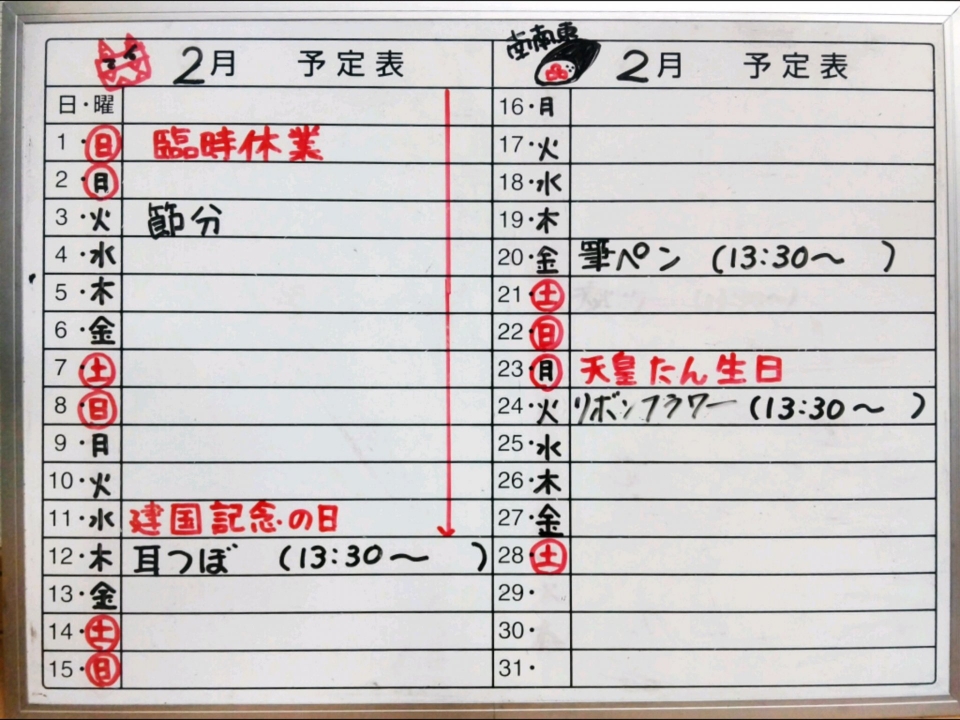 2月 予定表
日・曜
1・日 臨時休業
2・月
3・火 節分
4・水
5・木
6・金
7・土
8・日
9・月
10・火
11・水 建国記念の日
12・木 耳つぼ (13:30〜 )
13・金
14・土
15・日
南南東 2月 予定表
16・月
17・火
18・水
19・木
20・金 筆ペン (13:30〜 )
21・土
22・日
23・月 天皇たん生日
24・火 リボンフラワー (13:30〜 )
25・水
26・木
27・金
28・土
29・
30・
31・